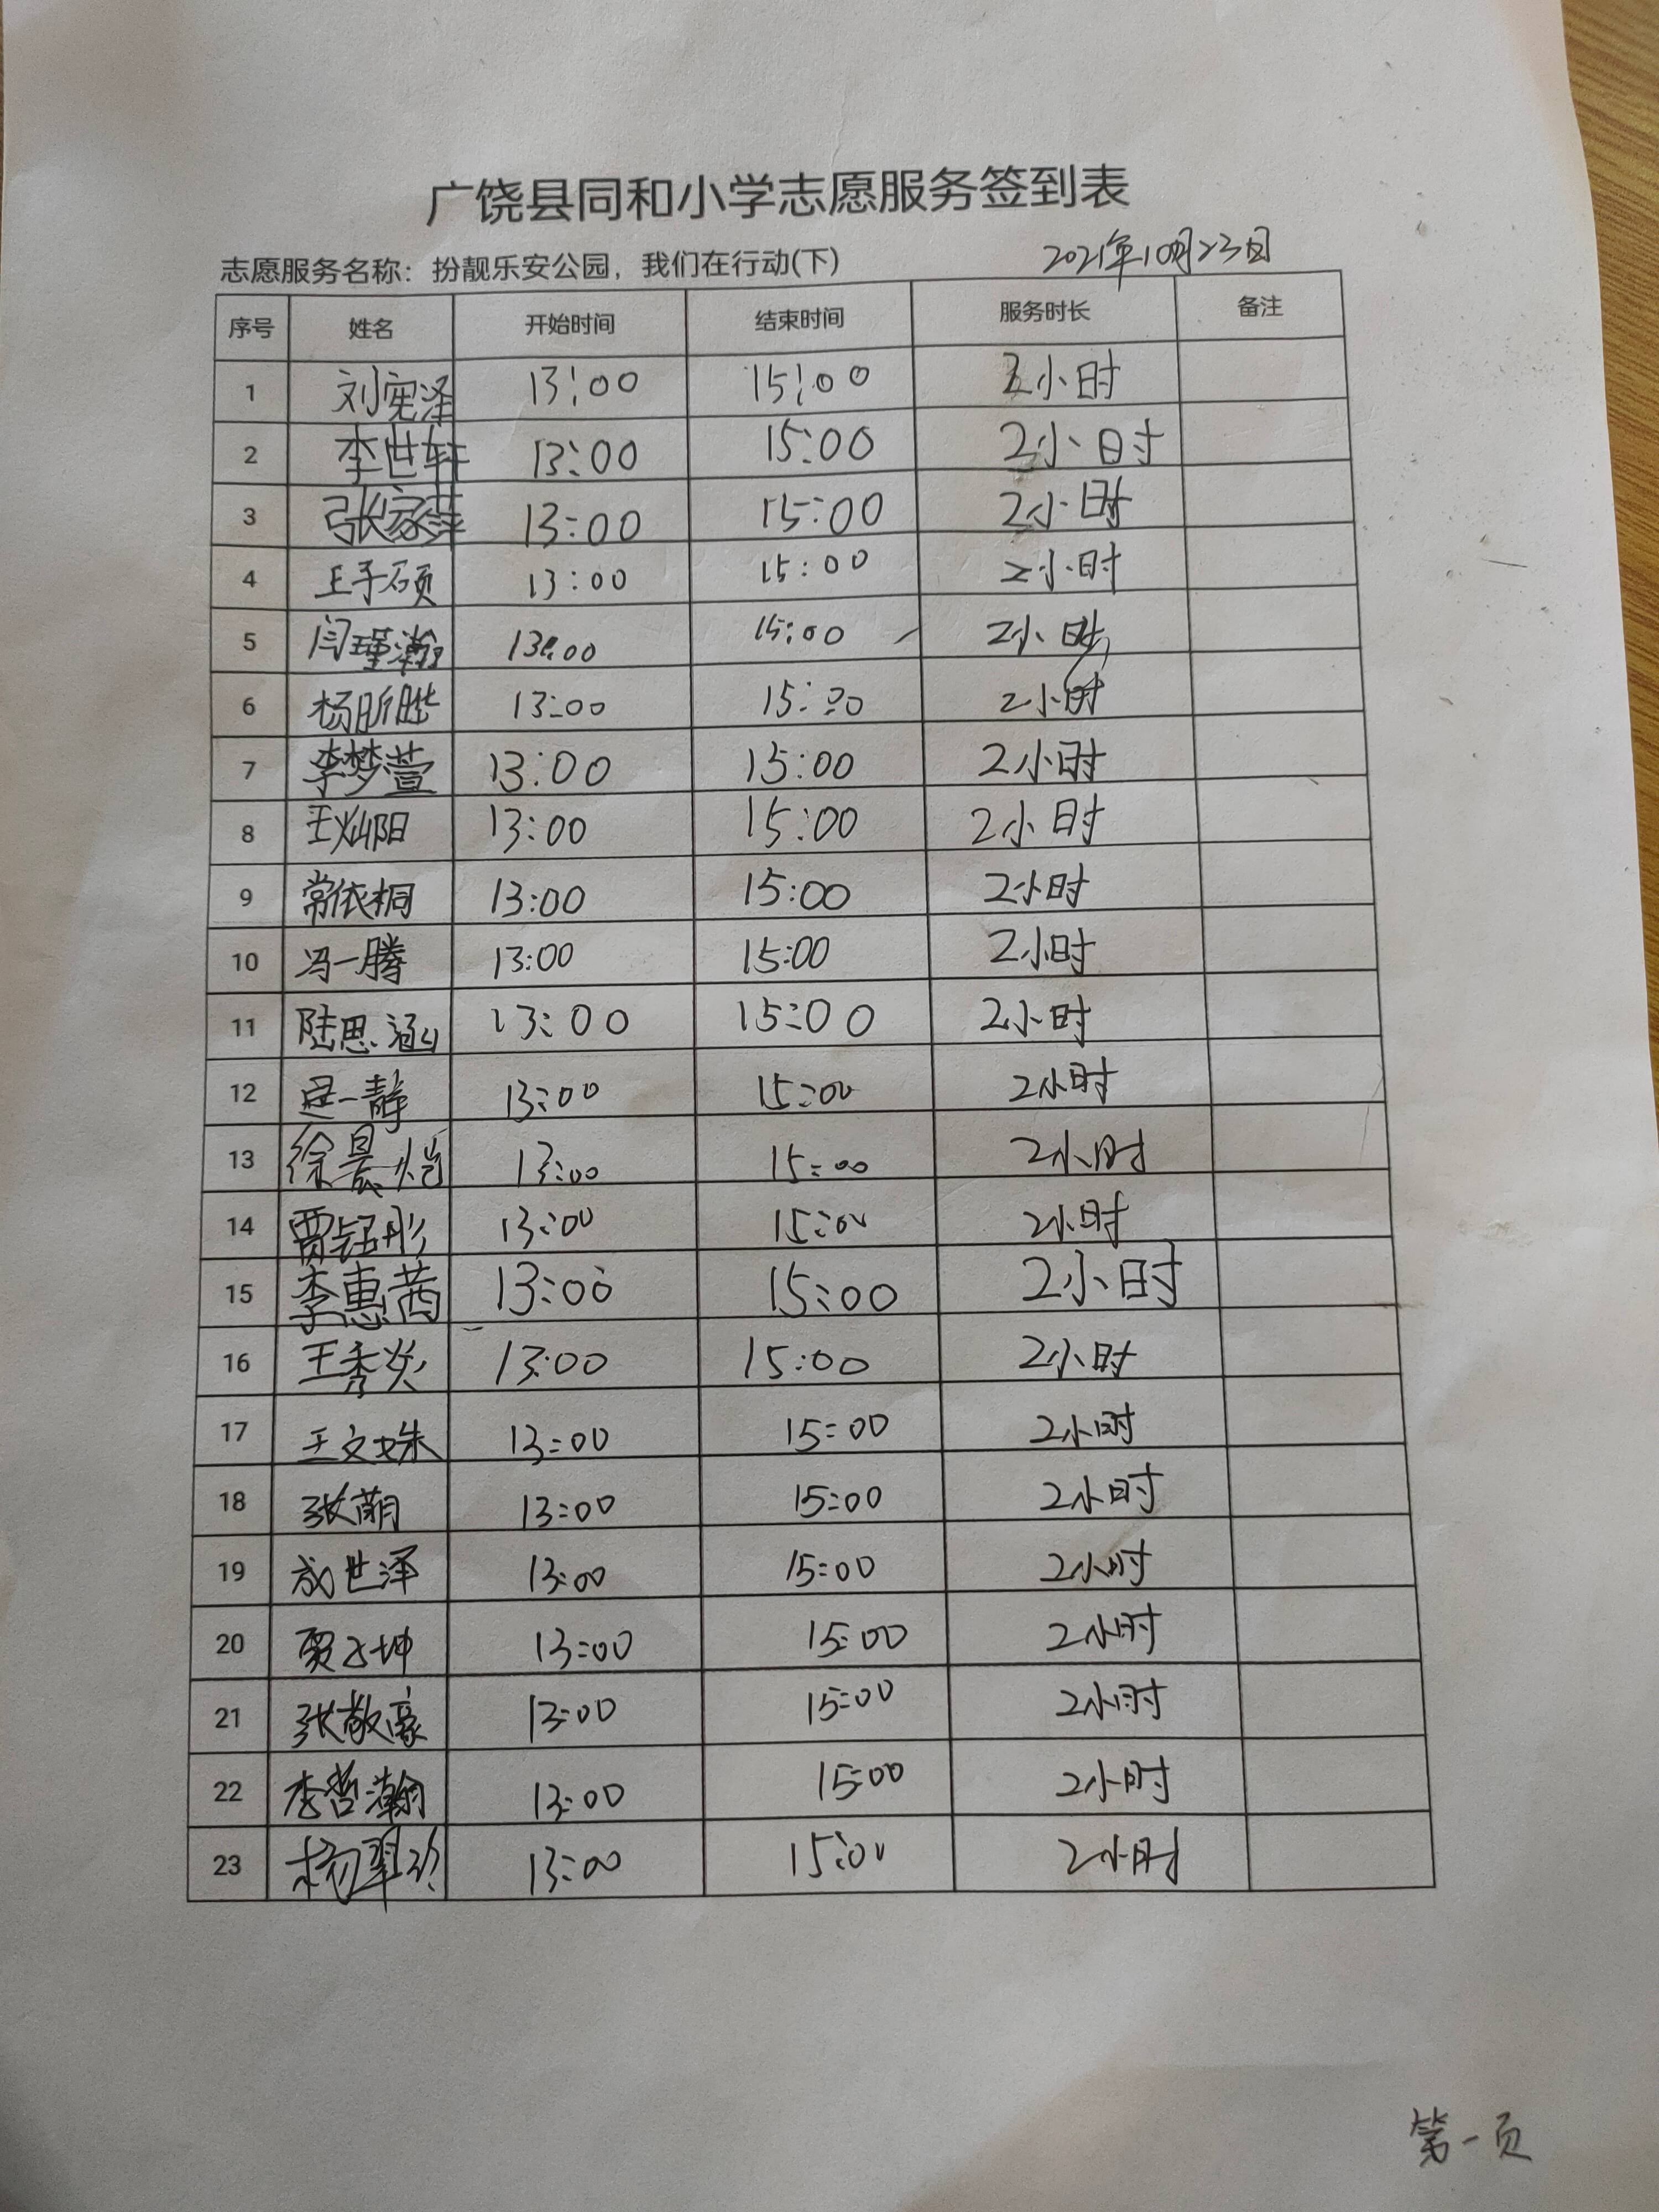 广饶县同和小学志愿服务签到表
志愿服务名称：扮靓乐安公园，我们在行动(下) 2021年10月23日
序号 姓名 开始时间 结束时间 服务时长 备注
1 刘宪泽 13:00 15:00 2小时
2 李世轩 13:00 15:00 2小时
3 张家萍 13:00 15:00 2小时
4 王子硕 13:00 15:00 2小时
5 闫瑾瀚 13:00 15:00 2小时
6 杨昕 13:00 15:00 2小时
7 李梦萱 13:00 15:00 2小时
8 王灿阳 13:00 15:00 2小时
9 常依桐 13:00 15:00 2小时
10 冯一腾 13:00 15:00 2小时
11 陆思涵 13:00 15:00 2小时
12 一静 13:00 15:00 2小时
13 徐晨恺 13:00 15:00 2小时
14 贾钰彤 13:00 15:00 2小时
15 李惠茜 13:00 15:00 2小时
16 王秀炎 13:00 15:00 2小时
17 王文姝 13:00 15:00 2小时
18 张萌 13:00 15:00 2小时
19 成世泽 13:00 15:00 2小时
20 贾子坤 13:00 15:00 2小时
21 张敬豪 13:00 15:00 2小时
22 李哲瀚 13:00 15:00 2小时
23 杨翠玲 13:00 15:00 2小时
第一页